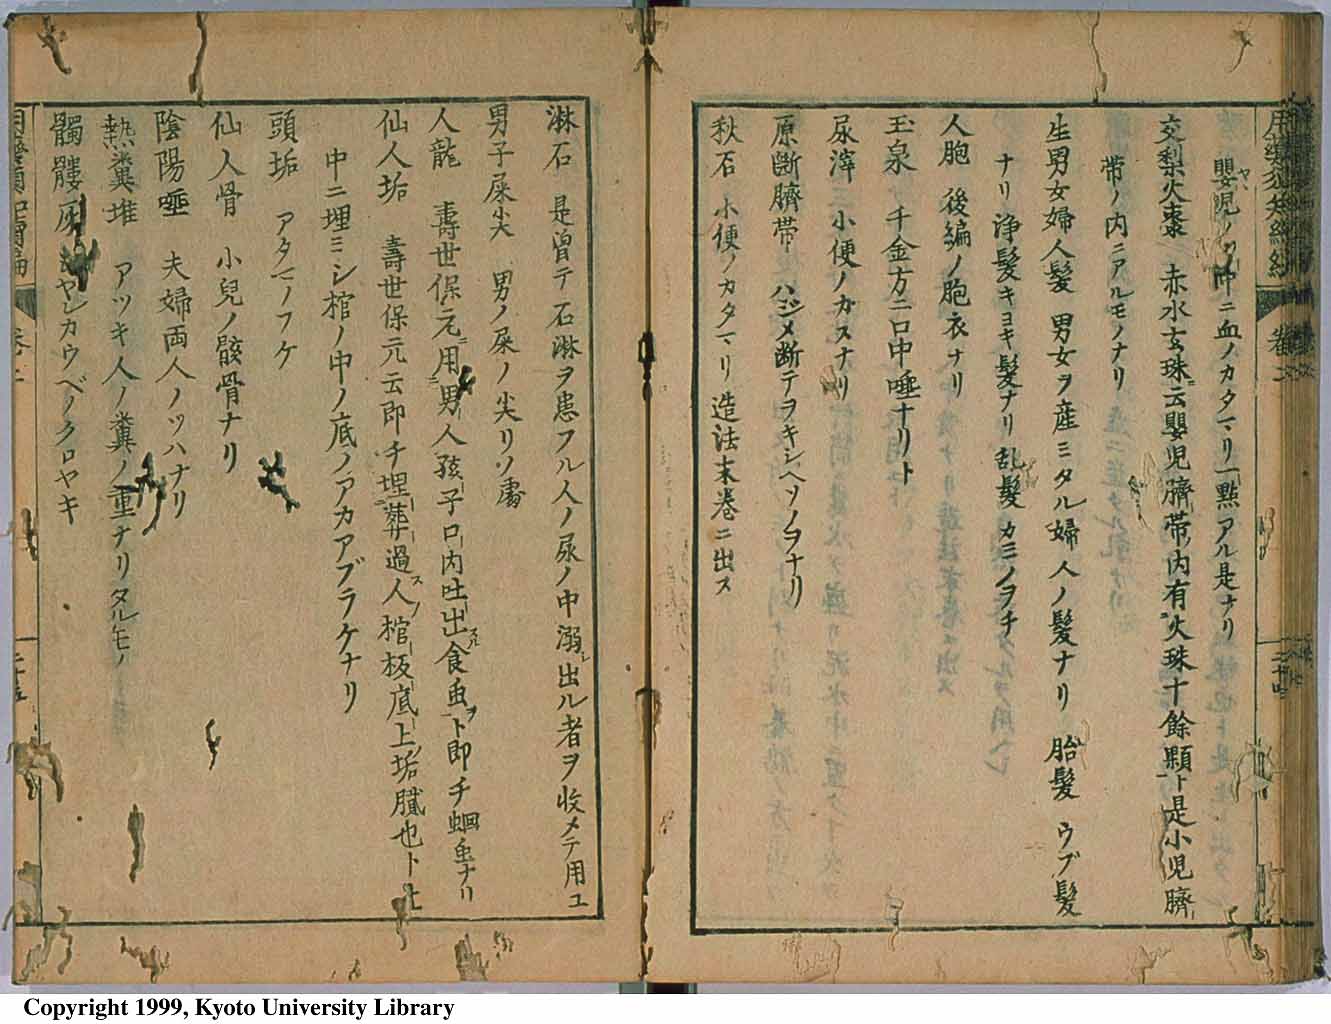 嬰児ノ中ニ血ノカタマリ一點アル是ナリ
交梨火棗 赤水玄珠云嬰児臍帯内有火珠十餘顆ト是小児臍
帯ノ内ニアルモノナリ
生男女婦人髪 男女ヲ産ミタル婦人ノ髪ナリ 胎髪 ウブ髪
ナリ 浄髪 キヨキ髪ナリ 乱髪 カミノヲチ
人胞 後編ノ胞衣ナリ
玉泉 千金方ニ口中唾ナリト
尿滓 小便ノカスナリ
原断臍帯 ハジメ断テヲキシヘソノヲナリ
秋石 小便ノカタマリ 造法末巻ニ出ス
淋石 是曽テ石淋ヲ患フル人ノ尿ノ中溺出ル者ヲ收メテ用エ
男子屎尖 男ノ屎ノ尖リソ
人龍 壽世保元ニ用男人孩子口内吐出食虫ト即チ蛔虫ナリ
仙人垢 壽世保元云即チ埋葬過人棺板底上垢膩也ト土
中ニ埋ミシ棺ノ中ノ底ノアカアブラケナリ
頭垢 アタマノフケ
仙人骨 小兒ノ骸骨ナリ
陰陽唾 夫婦両人ノツハナリ
熱糞堆 アツキ人ノ糞ノ重ナリタルモノ
髑髏灰 ヤシカウベノクロヤキ
Copyright 1999, Kyoto University Library